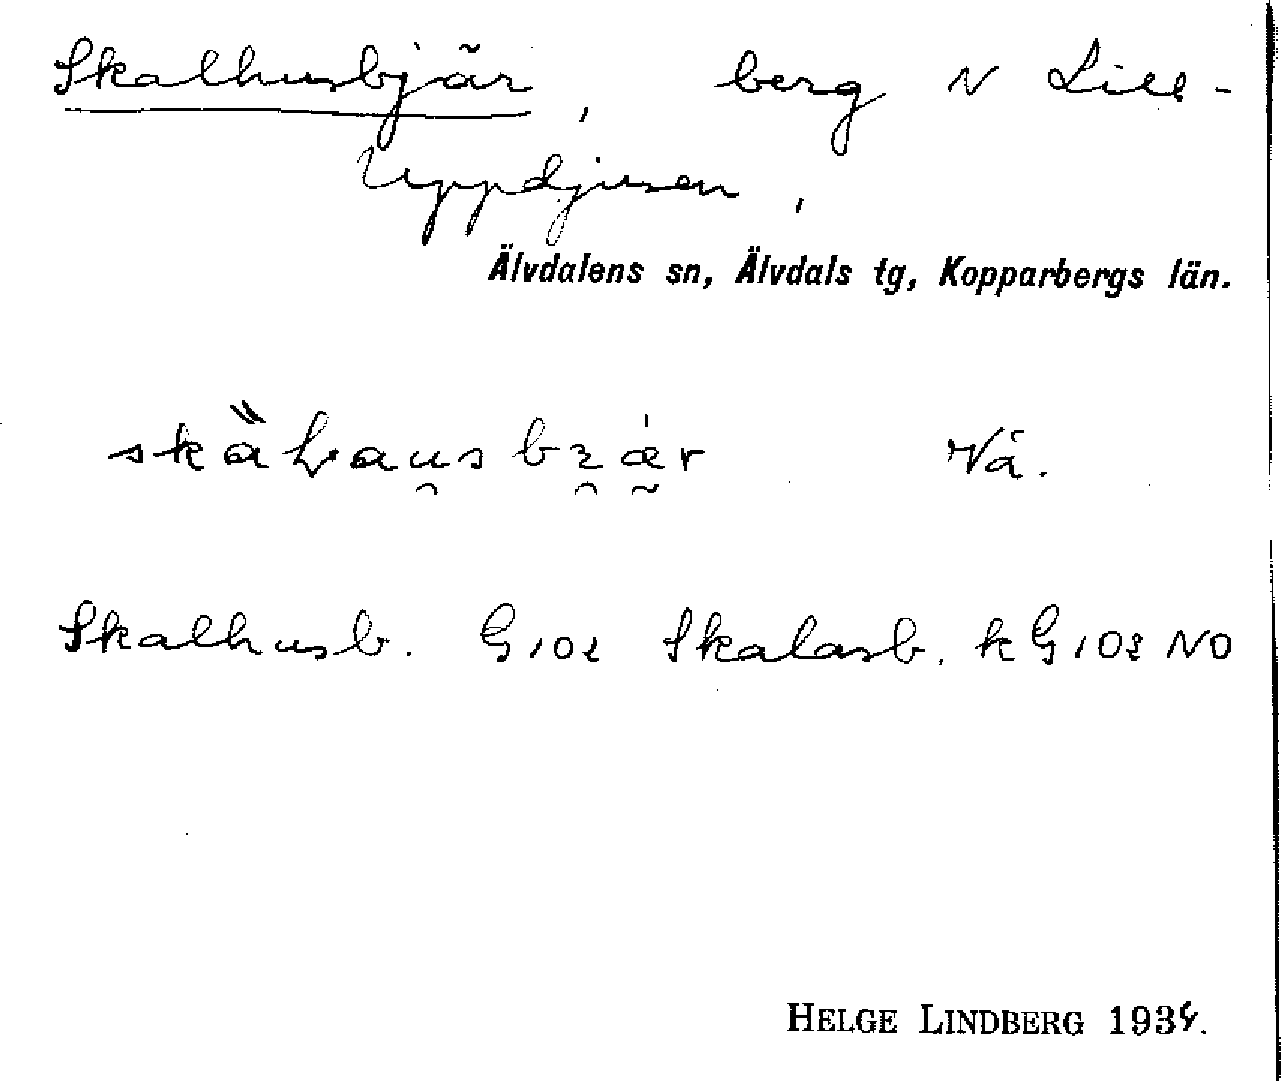 Skalhusbjär, berg N Lill-
Uppdjusen,
Älvdalens sn, Älvdals tg, Kopparbergs län.
Vå.
Skalhusb. G102 Skalasb. k G102 NO
HELGE LINDBERG 1934.